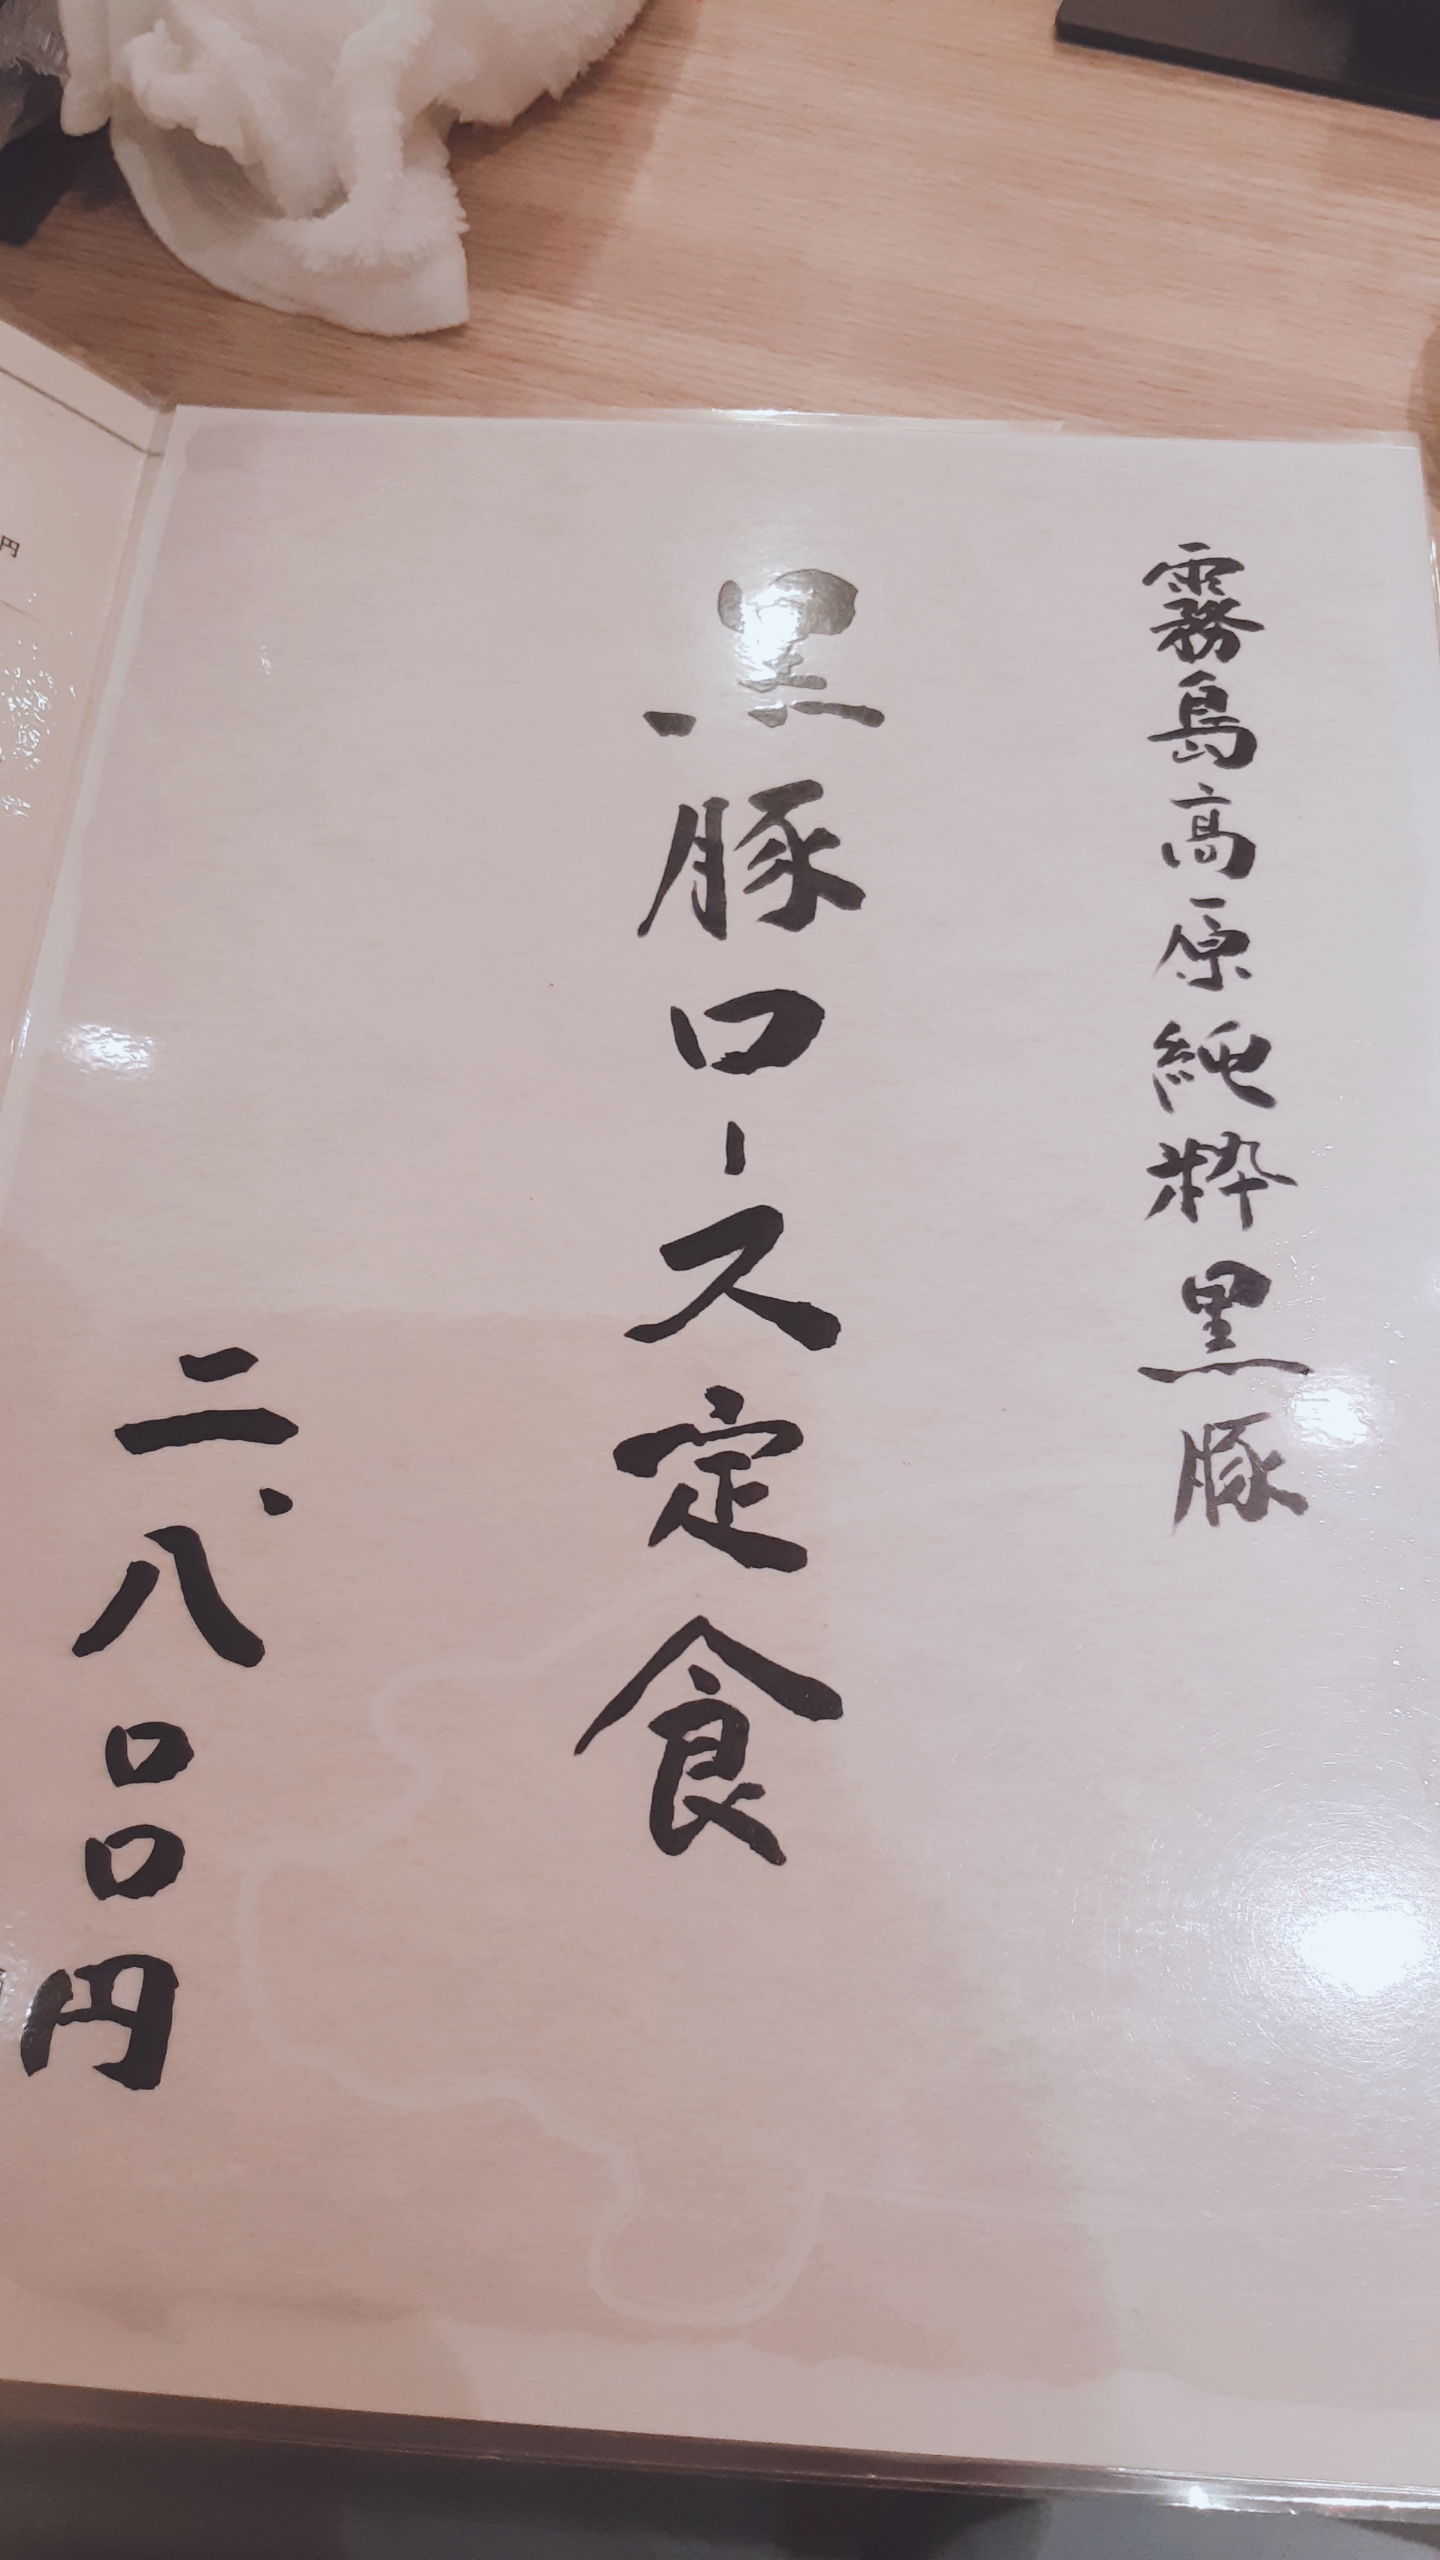 霧島高原純粋黒豚
黒豚ロース定食
二、八〇〇円
円